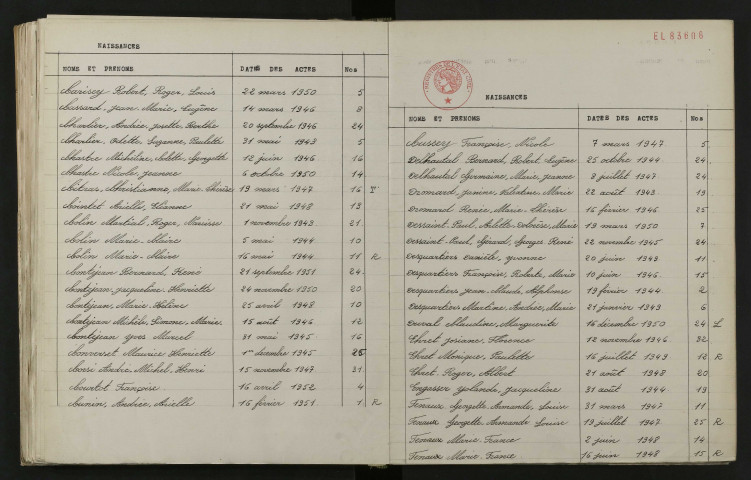 NAISSANCES
NOMS ET PRENOMS DATES DES ACTES Nos
Carisey Robert, Roger, Louis 22 mars 1950 5
Cassard Jean, Marie, Eugène 14 mars 1946 8
Charlier, Andrée, Josette, Berthe 20 septembre 1946 24
Charlier, Odette, Suzanne, Paulette 31 mai 1943 5
Chastre Micheline, Odette, Georgette 12 juin 1946 16
Chastre Nicole, Jeanne 6 octobre 1950 14
19 mars 1947 16
21 mai 1948 13
Colin Martial, Roger, Narcisse 1 novembre 1943 21
Colin Marie-Claire 5 mai 1944 10
Colin Marie-Claire 16 mai 1944 11 R
Contéjean Bernard, René 21 septembre 1951 24
Contéjean, Jacqueline, Henriette 24 novembre 1950 20
Contéjean, Marie-Hélène 25 avril 1948 10
Contéjean Michèle, Simone, Marie 15 août 1946 12
Contéjean Yves Marcel 31 mai 1945 16
Converset Maurice Henriette 1er décembre 1945 25
André, Michel, Henri 15 novembre 1947 31
Courtot Françoise 16 avril 1952 4
Cunin, Andrée, Arielle 16 février 1951 1 R
EL 83606
NAISSANCES
NOMS ET PRENOMS DATES DES ACTES Nos
Cussey Françoise, Nicole 7 mars 1947 5
Delhautal Bernard, Robert Eugène 25 octobre 1944 24
Delhautal Germaine, Marie, Jeanne 8 juillet 1947 24
Dromard, Janine, Valentine, Marie 22 août 1943 19
Dromard Renée, Marie-Thérèse 16 février 1946 25
Dessaint-Paul, Arlette Marie 19 mars 1950 7
Dessaint-Paul, Gérard, Georges René 22 novembre 1945 24
Desquartiers Danièle, Yvonne 20 juin 1943 11
Desquartiers Françoise, Roberte, Marie 10 juin 1946 15
Desquartiers, Jean, Claude, Alphonse 19 février 1944 2
Desquartiers Martine, Andrée, Marie 21 janvier 1949 6
Duval Claudine, Marguerite 16 décembre 1950 24 L
Josiane, Florence 12 novembre 1946 32
Monique, Paulette 16 juillet 1943 12 R
Roger, Albert 21 août 1948 20
Engasser Yolande, Jacqueline 31 août 1944 19
Fenaux Georgette Armande, Louise 31 mars 1947 11
Fenaux Georgette Armande Louise 19 juillet 1947 25 R
Fenaux Marie-France 2 juin 1948 14
Fenaux Marie-France 16 juin 1948 15 R